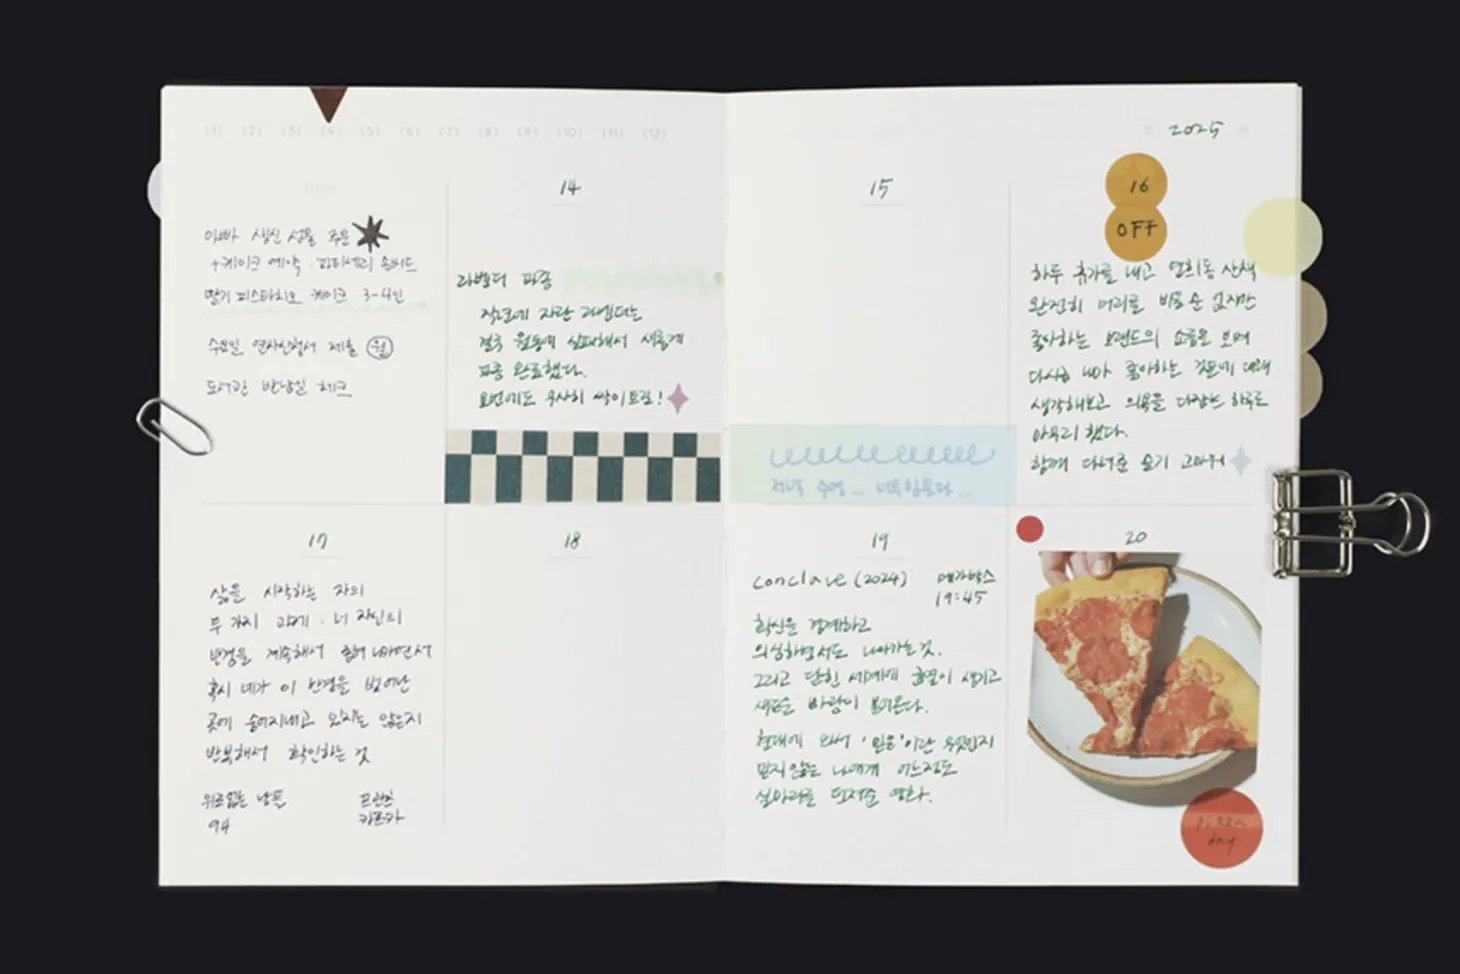 (1) (2) (3) (4) (5) (6) (7) (8) (9) (10) (11) (12)
2025
아빠 생신 선물 주문
+케이크 예약
딸기 피스타치오 케이크 3-4인
수요일 연차신청서 제출 월
도서관 반납일 체크
14
라벤더 파종
작년에 자란 라벤더는
결국 월동에 실패해서 새롭게
파종 완료했다.
요번에도 무사히 싹이 트길!
15
저녁 수영... 너무 힘들다...
16
OFF
하루 휴가를 내고 연희동 산책
완전히 머리를 비울 순 없지만
좋아하는 브랜드의 쇼룸을 보며
다시금 내가 좋아하는 것들에 대해
생각해보고 의욕을 다잡는 하루로
마무리 했다.
함께 다녀준 슬기 고마워
17
삶을 시작하는 자의
두 가지 과제 : 너 자신의
반경을 계속해서 좁혀 나가면서
혹시 네가 이 반경을 벗어난
곳에 숨어지내고 있지는 않은지
반복해서 확인하는 것
위로없는 날들
프란츠
94
카프카
18
19
conclave (2024) 메가박스
19:45
확신을 경계하고
의심하면서도 나아가는 것.
그리고 닫힌 세계에 균열이 생기고
새로운 바람이 불어온다.
현대에 와서 '믿음'이란 무엇인지
믿지 않는 나에게 어느정도
실마리를 던져준 영화.
20
pizza
day